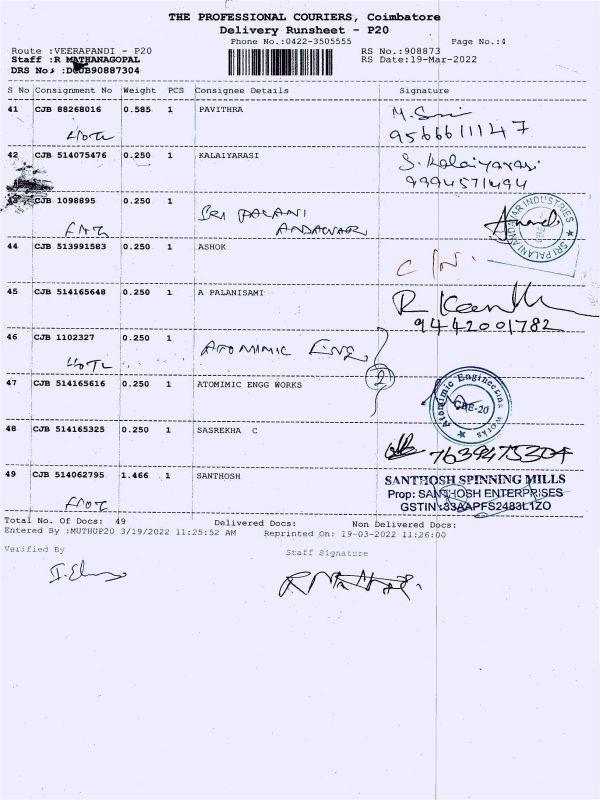 THE PROFESSIONAL COURIERS, Coimbatore
Delivery Runsheet - P20
Phone No.:0422-3505555
Page No.:4
Route :VEERAPANDI - P20
RS No.:908873
Staff :R MATHANAGOPAL
RS Date:19-Mar-2022
DRS No.:DCUB90887304
S No Consignment No Weight PCS Consignee Details Signature
41 CJB 88268016 0.585 1 PAVITHRA
M. Sri
9566611147
42 CJB 514075476 0.250 1 KALAIYARASI
S. Kalaiyarasi
9994571494
CJB 1098895 0.250 1 SRI PALANI
ANDAVAR
Anand
SRI PALANI ANDAVAR INDUSTRIES
44 CJB 513991583 0.250 1 ASHOK
45 CJB 514165648 0.250 1 A PALANISAMI
9442001782
46 CJB 1102327 0.250 1 ATOMIMIC ENG
2
47 CJB 514165616 0.250 1 ATOMIMIC ENGG WORKS
Atomimic Engineering Works
CBE-20
48 CJB 514165325 0.250 1 SASREKHA C
7639475304
49 CJB 514062795 1.466 1 SANTHOSH
SANTHOSH SPINNING MILLS
Prop: SANTHOSH ENTERPRISES
GSTIN:33AAPFS2483L1ZO
Total No. Of Docs: 49 Delivered Docs: Non Delivered Docs:
Entered By :MUTHUP20 3/19/2022 11:25:52 AM Reprinted On: 19-03-2022 11:26:00
Verified By
Staff Signature